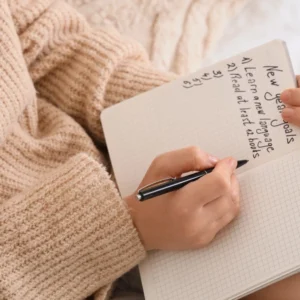 New year goals
1) Learn a new language
2) Read at least 12 books
3)
4)
5)
6)